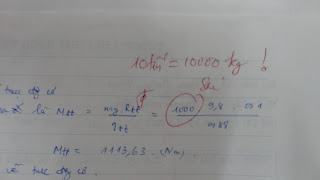 10 tấn = 10000 kg !
Sai
tực động cơ
là Mtt = mg Rtt / ηtt = 1000 . 9,8 . 0,1 / 0,88
Mtt = 1113,63 . (Nm) .
tực động cơ .